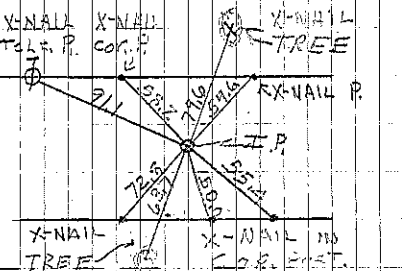 X-NAIL
TELE. P.
X-NAIL
COR. P.
X-NAIL
TREE
X-NAIL P.
91.1
58.2
79.6
59.6
I.P.
72.5
68.7
50.0
55.4
X-NAIL
TREE
X-NAIL IN
COR. POST.